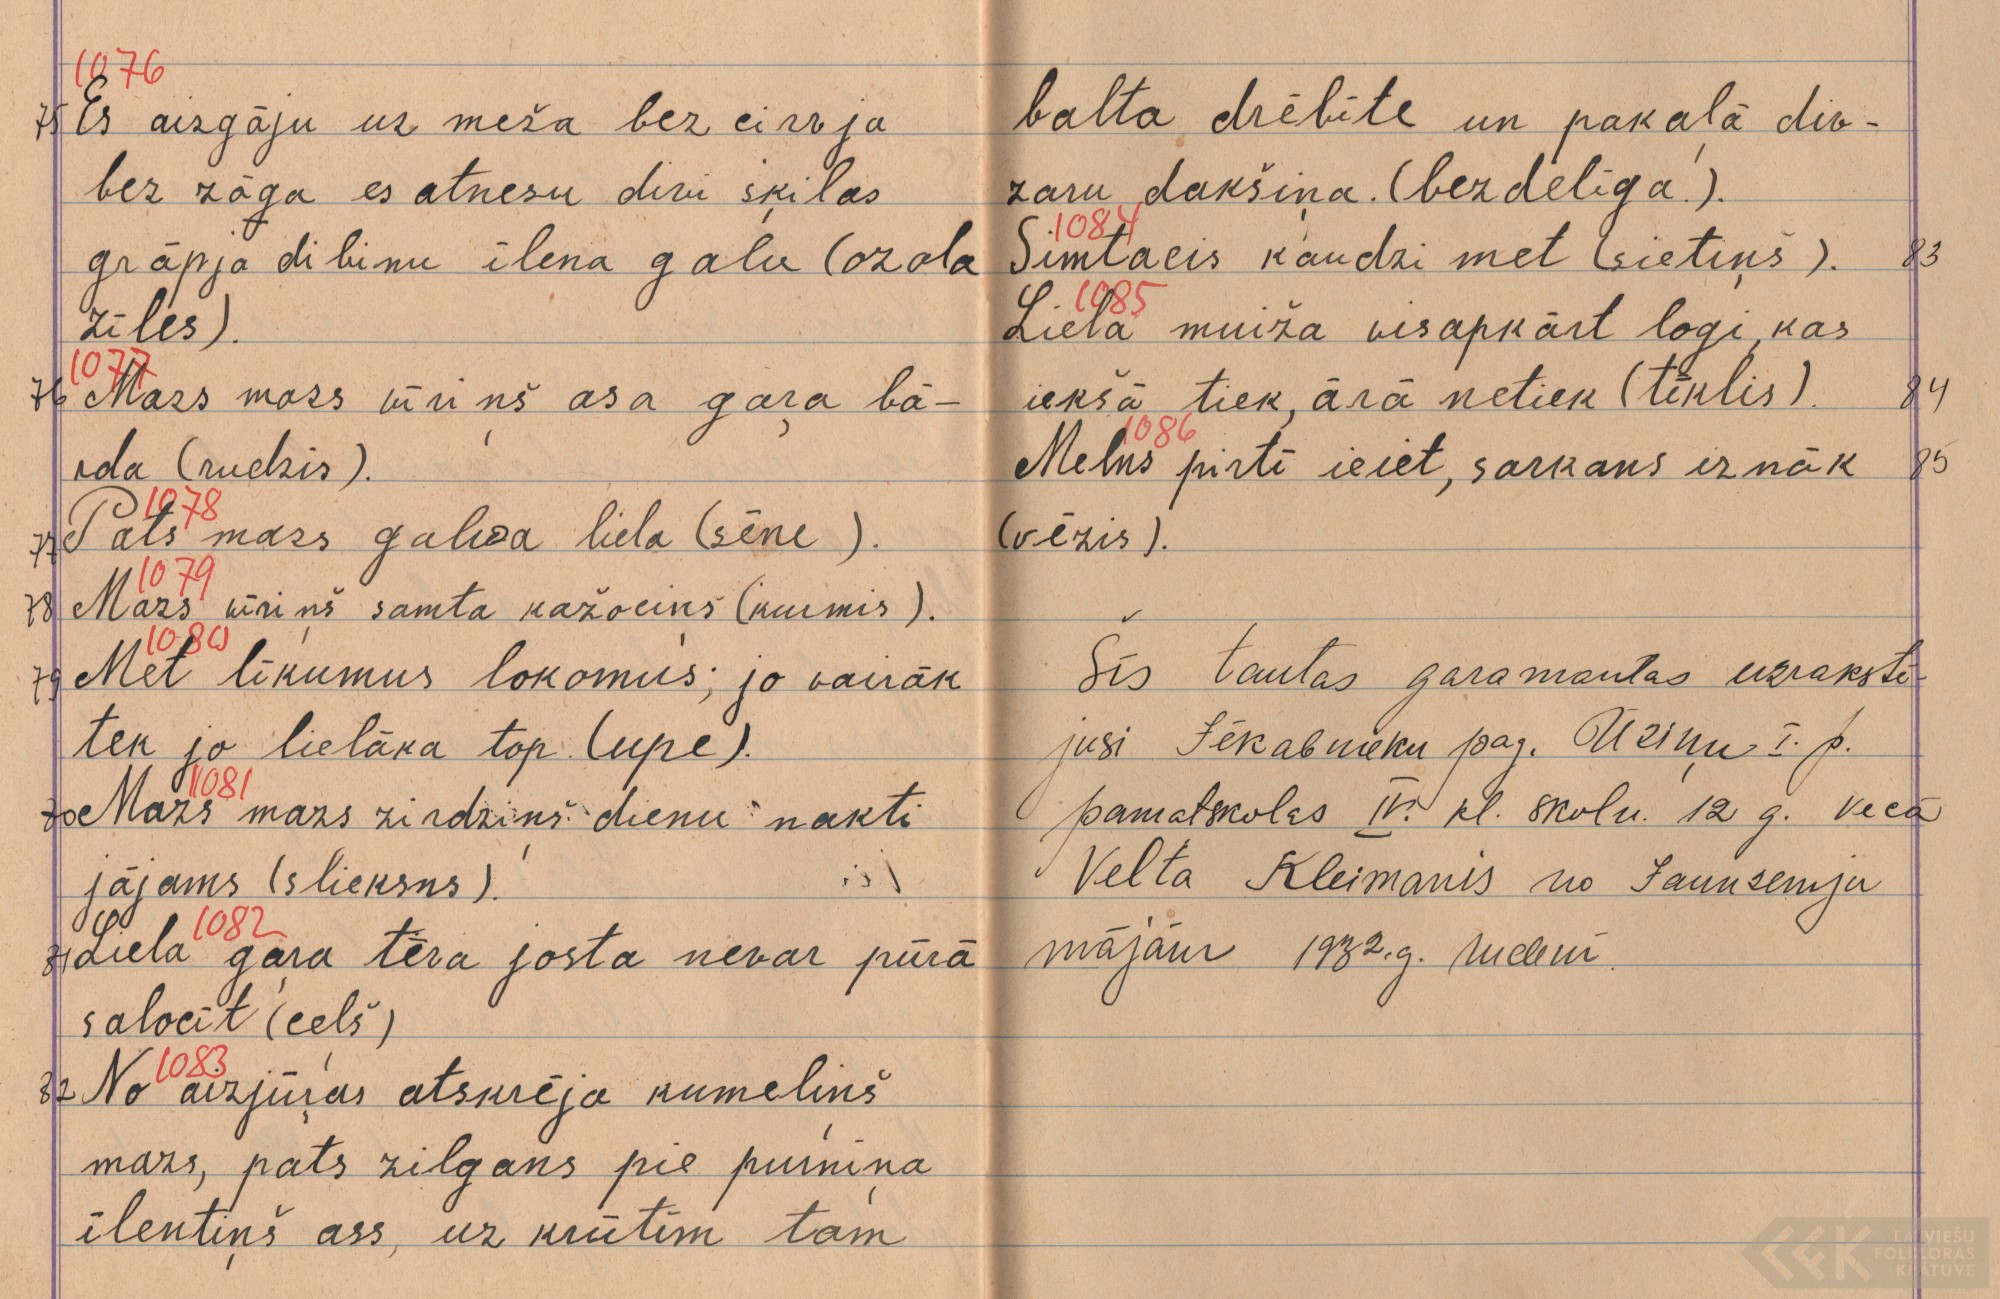 1076
75 Es aizgāju uz meža bez cirvja
bez zāga es atnesu divi šķilas
grāpja dibinu īlena galu (ozola
zīles).
1077
76 Mazs mazs vīriņš asa gaŗa bā-
rda (rudzis).
1078
77 Pats mazs galva liela (sēne).
1079
78 Mazs vīriņš samta kažociņš (kurmis).
1080
79 Met līkumus lokomus; jo vairāk
tek jo lielāka top. (upe).
1081
80 Mazs mazs zirdziņš dienu nakti
jājams (slieksns).
1082
81 Liela gaŗa tēva josta nevar pūrā
salocīt (ceļš)
1083
82 No aizjūŗas atskrēja kumeliņš
mazs, pats zilgans pie purniņa
īlentiņš ass, uz krūtīm tam
balta drēbīte un pakaļā div-
zaru dakšiņa. (bezdelīga).
1084
Simtacis kaudzi met (sietiņš). 83
1085
Liela muiža visapkārt logi, kas
iekšā tiek, ārā netiek (tīklis). 84
1086
Melns pirtī ieiet, sarkans iznāk 85
(vēzis).
Šīs tautas garamantas uzrakstī-
jusi Jēkabnieku pag. Ūziņu I. p.
pamatskolas IV. kl. skoln. 12 g. vecā
Velta Kleimanis no Jaunzemju
mājām 1932.g. rudenī.
LATVIEŠU
FOLKLORAS
KRĀTUVE